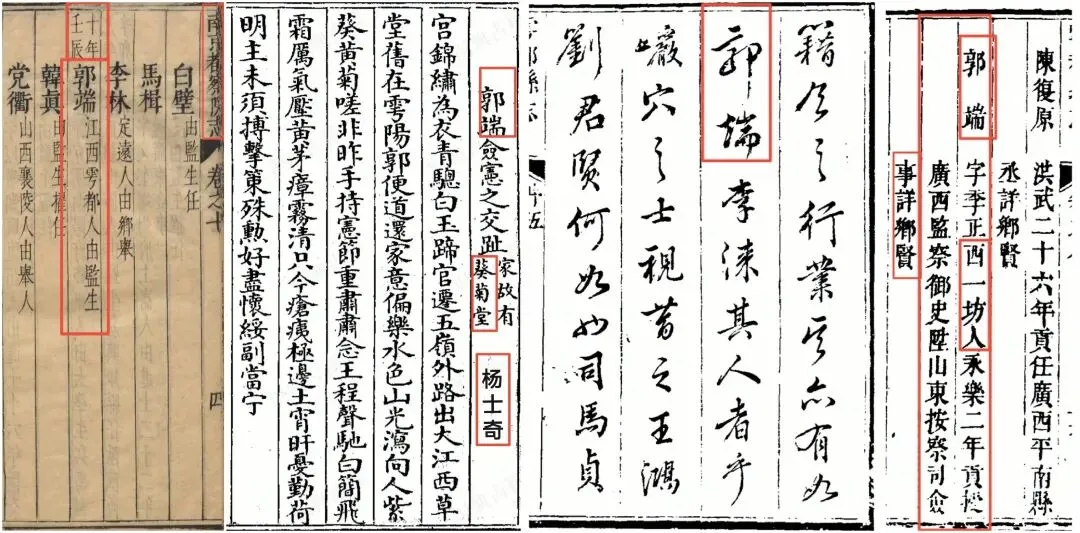 南京都察院志 卷之十 四
白璧 由監生任
馬楫
李林 定遠人由鄉舉
十年壬辰 郭端 江西雩都人由監生
韓真 由監生擢任
党衢 山西襄陵人由舉人
郭端僉憲之交趾 家故有葵菊堂 杨士奇
宮錦繡為衣青驄白玉蹄官遷五嶺外路出大江西草
堂舊在雩陽郭便道還家意偏樂水色山光瀉向人紫
葵黃菊嗟非昨手持憲節重肅肅念王程聲馳白簡飛
霜厲氣壓黃茅瘴霧清只今瘡痍極邊土宵旰憂勤荷
明主未須搏擊策殊勲好盡懷綏副當宁
籍令之行業亦有如
郭端李淶其人者乎
巖穴之士視昔之王鴻
劉君賢何如司馬貞
都縣志 十五
陳復原 洪武二十六年貢任廣西平南縣
丞詳鄉賢
郭端 字季正西一坊人永樂二年貢授
廣西監察御史陞山東按察司僉
事詳鄉賢